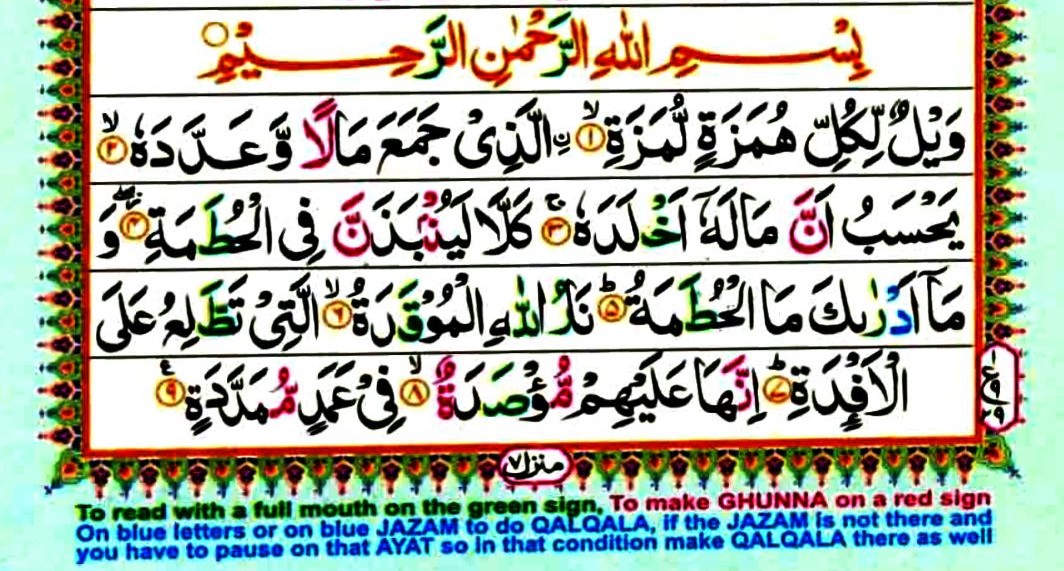 بِسْمِ اللهِ الرَّحْمٰنِ الرَّحِيْمِ
وَيْلٌ لِّكُلِّ هُمَزَةٍ لُّمَزَةِ ۙ﴿۱﴾ ۨالَّذِيْ جَمَعَ مَالًا وَّعَدَّدَهٗ ۙ﴿۲﴾
يَحْسَبُ اَنَّ مَالَهٗۤ اَخْلَدَهٗ ۚ﴿۳﴾ كَلَّا لَيُنْۢبَذَنَّ فِي الْحُطَمَةِ ۖ﴿۴﴾ وَ
مَاۤ اَدْرٰىكَ مَا الْحُطَمَةُ ؕ﴿۵﴾ نَارُ اللهِ الْمُوْقَدَةُ ۙ﴿۶﴾ الَّتِيْ تَطَّلِعُ عَلَى
الْاَفْـِٕدَةِ ؕ﴿۷﴾ اِنَّهَا عَلَيْهِمْ مُّؤْصَدَةٌ ۙ﴿۸﴾ فِيْ عَمَدٍ مُّمَدَّدَةٍ ﴿۹﴾
ع
منزل ۷
To read with a full mouth on the green sign, To make GHUNNA on a red sign
On blue letters or on blue JAZAM to do QALQALA, if the JAZAM is not there and
you have to pause on that AYAT so in that condition make QALQALA there as well